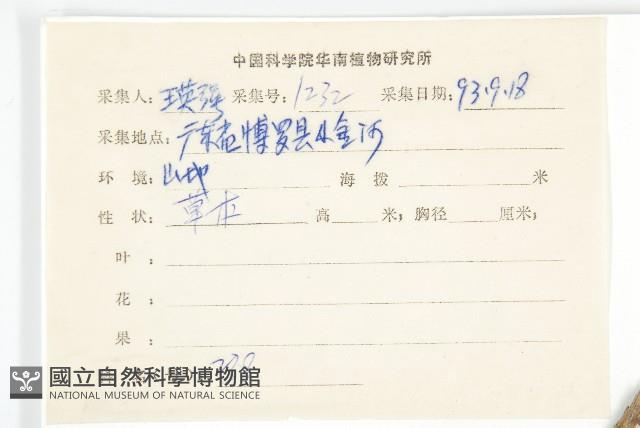 中国科学院华南植物研究所
采集人：瑛强 采集号：1232 采集日期：93.9.18
采集地点：广东省博罗县小金河
环　境：山地 海　拨 米
性　状：草本 高 米；胸径 厘米；
叶　：
花　：
果　：
國立自然科學博物館
NATIONAL MUSEUM OF NATURAL SCIENCE